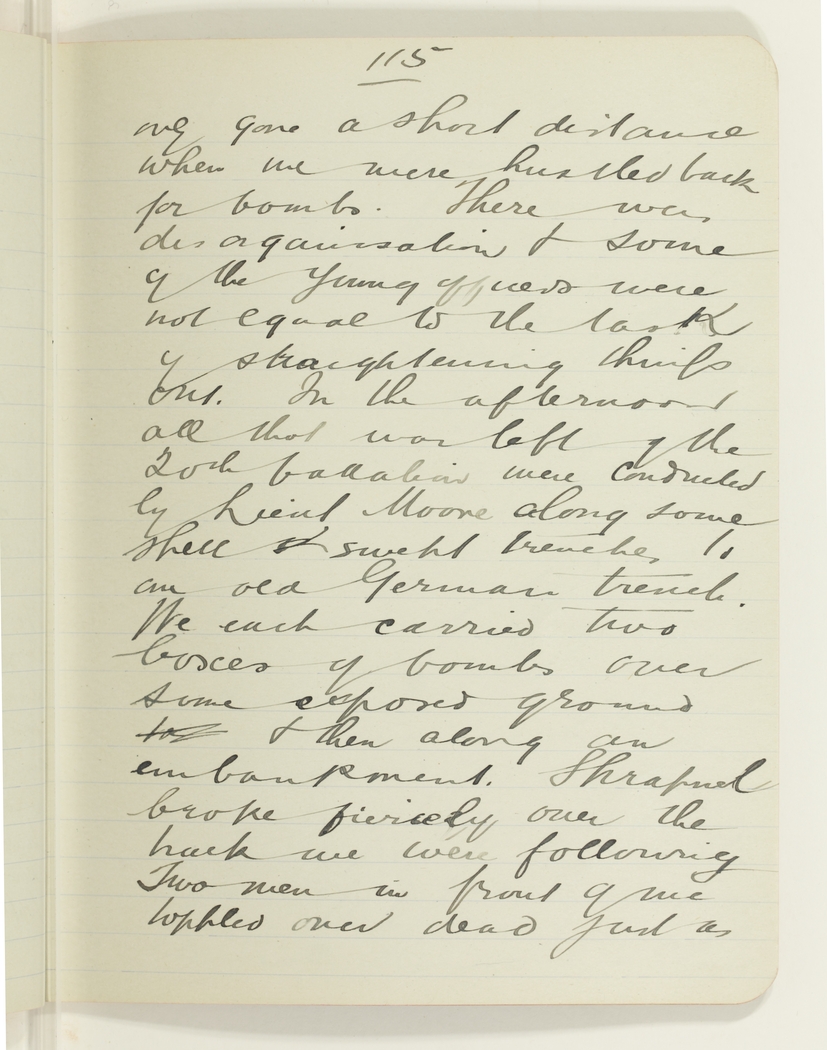 115
only gone a short distance
when we were hustled back
for bombs. There was
disorganissation & some
of the young officers were
not equal to the task
of straightening things
out. In the afternoon
all that was left of the
20th battalion were conducted
by Lieut Moore along some
shell swept trenches to
an old German trench.
We each carried two
boxes of bombs over
some exposed ground
& then along an
embankment. Shrapnel
broke fiercely over the
track we were following
Two men in front of me
toppled over dead just as